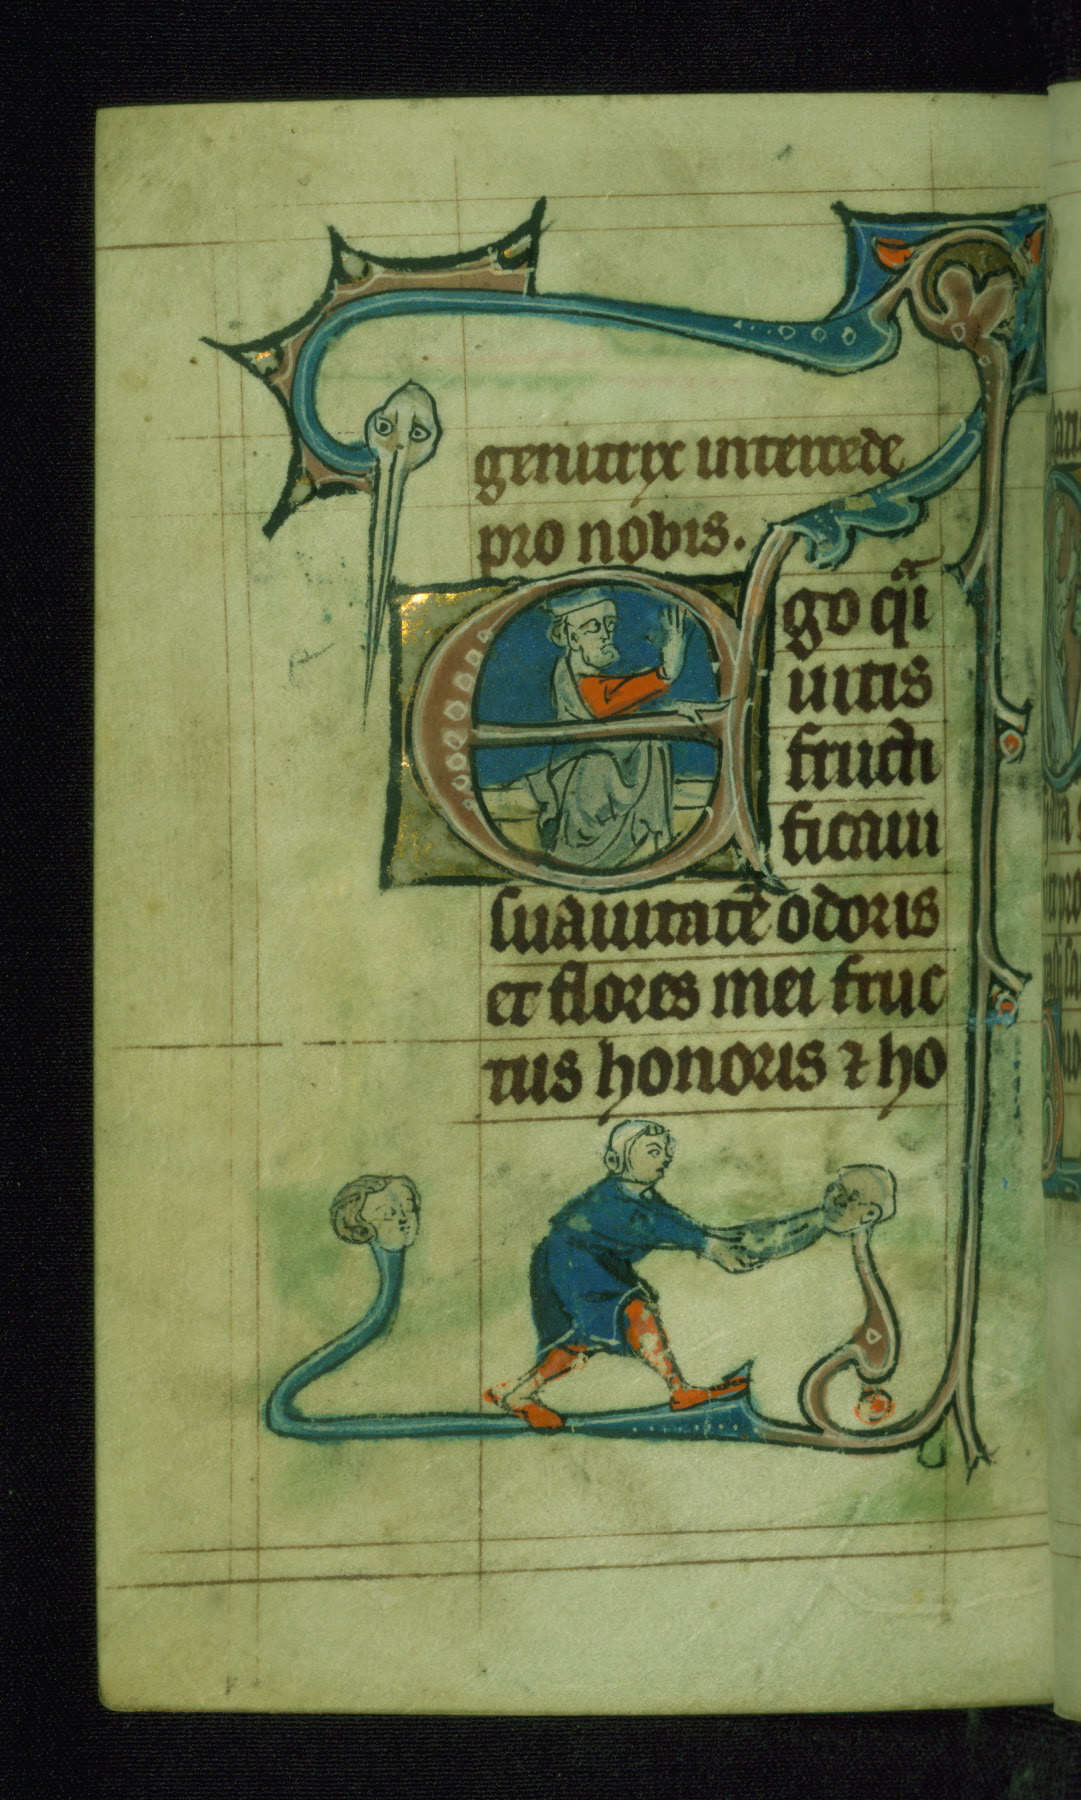 genitrix intercede
pro nobis.
Ego q̄si
uitis
fructi
ficaui
suauitatē odoris
et flores mei fruc
tus honoris ⁊ ho